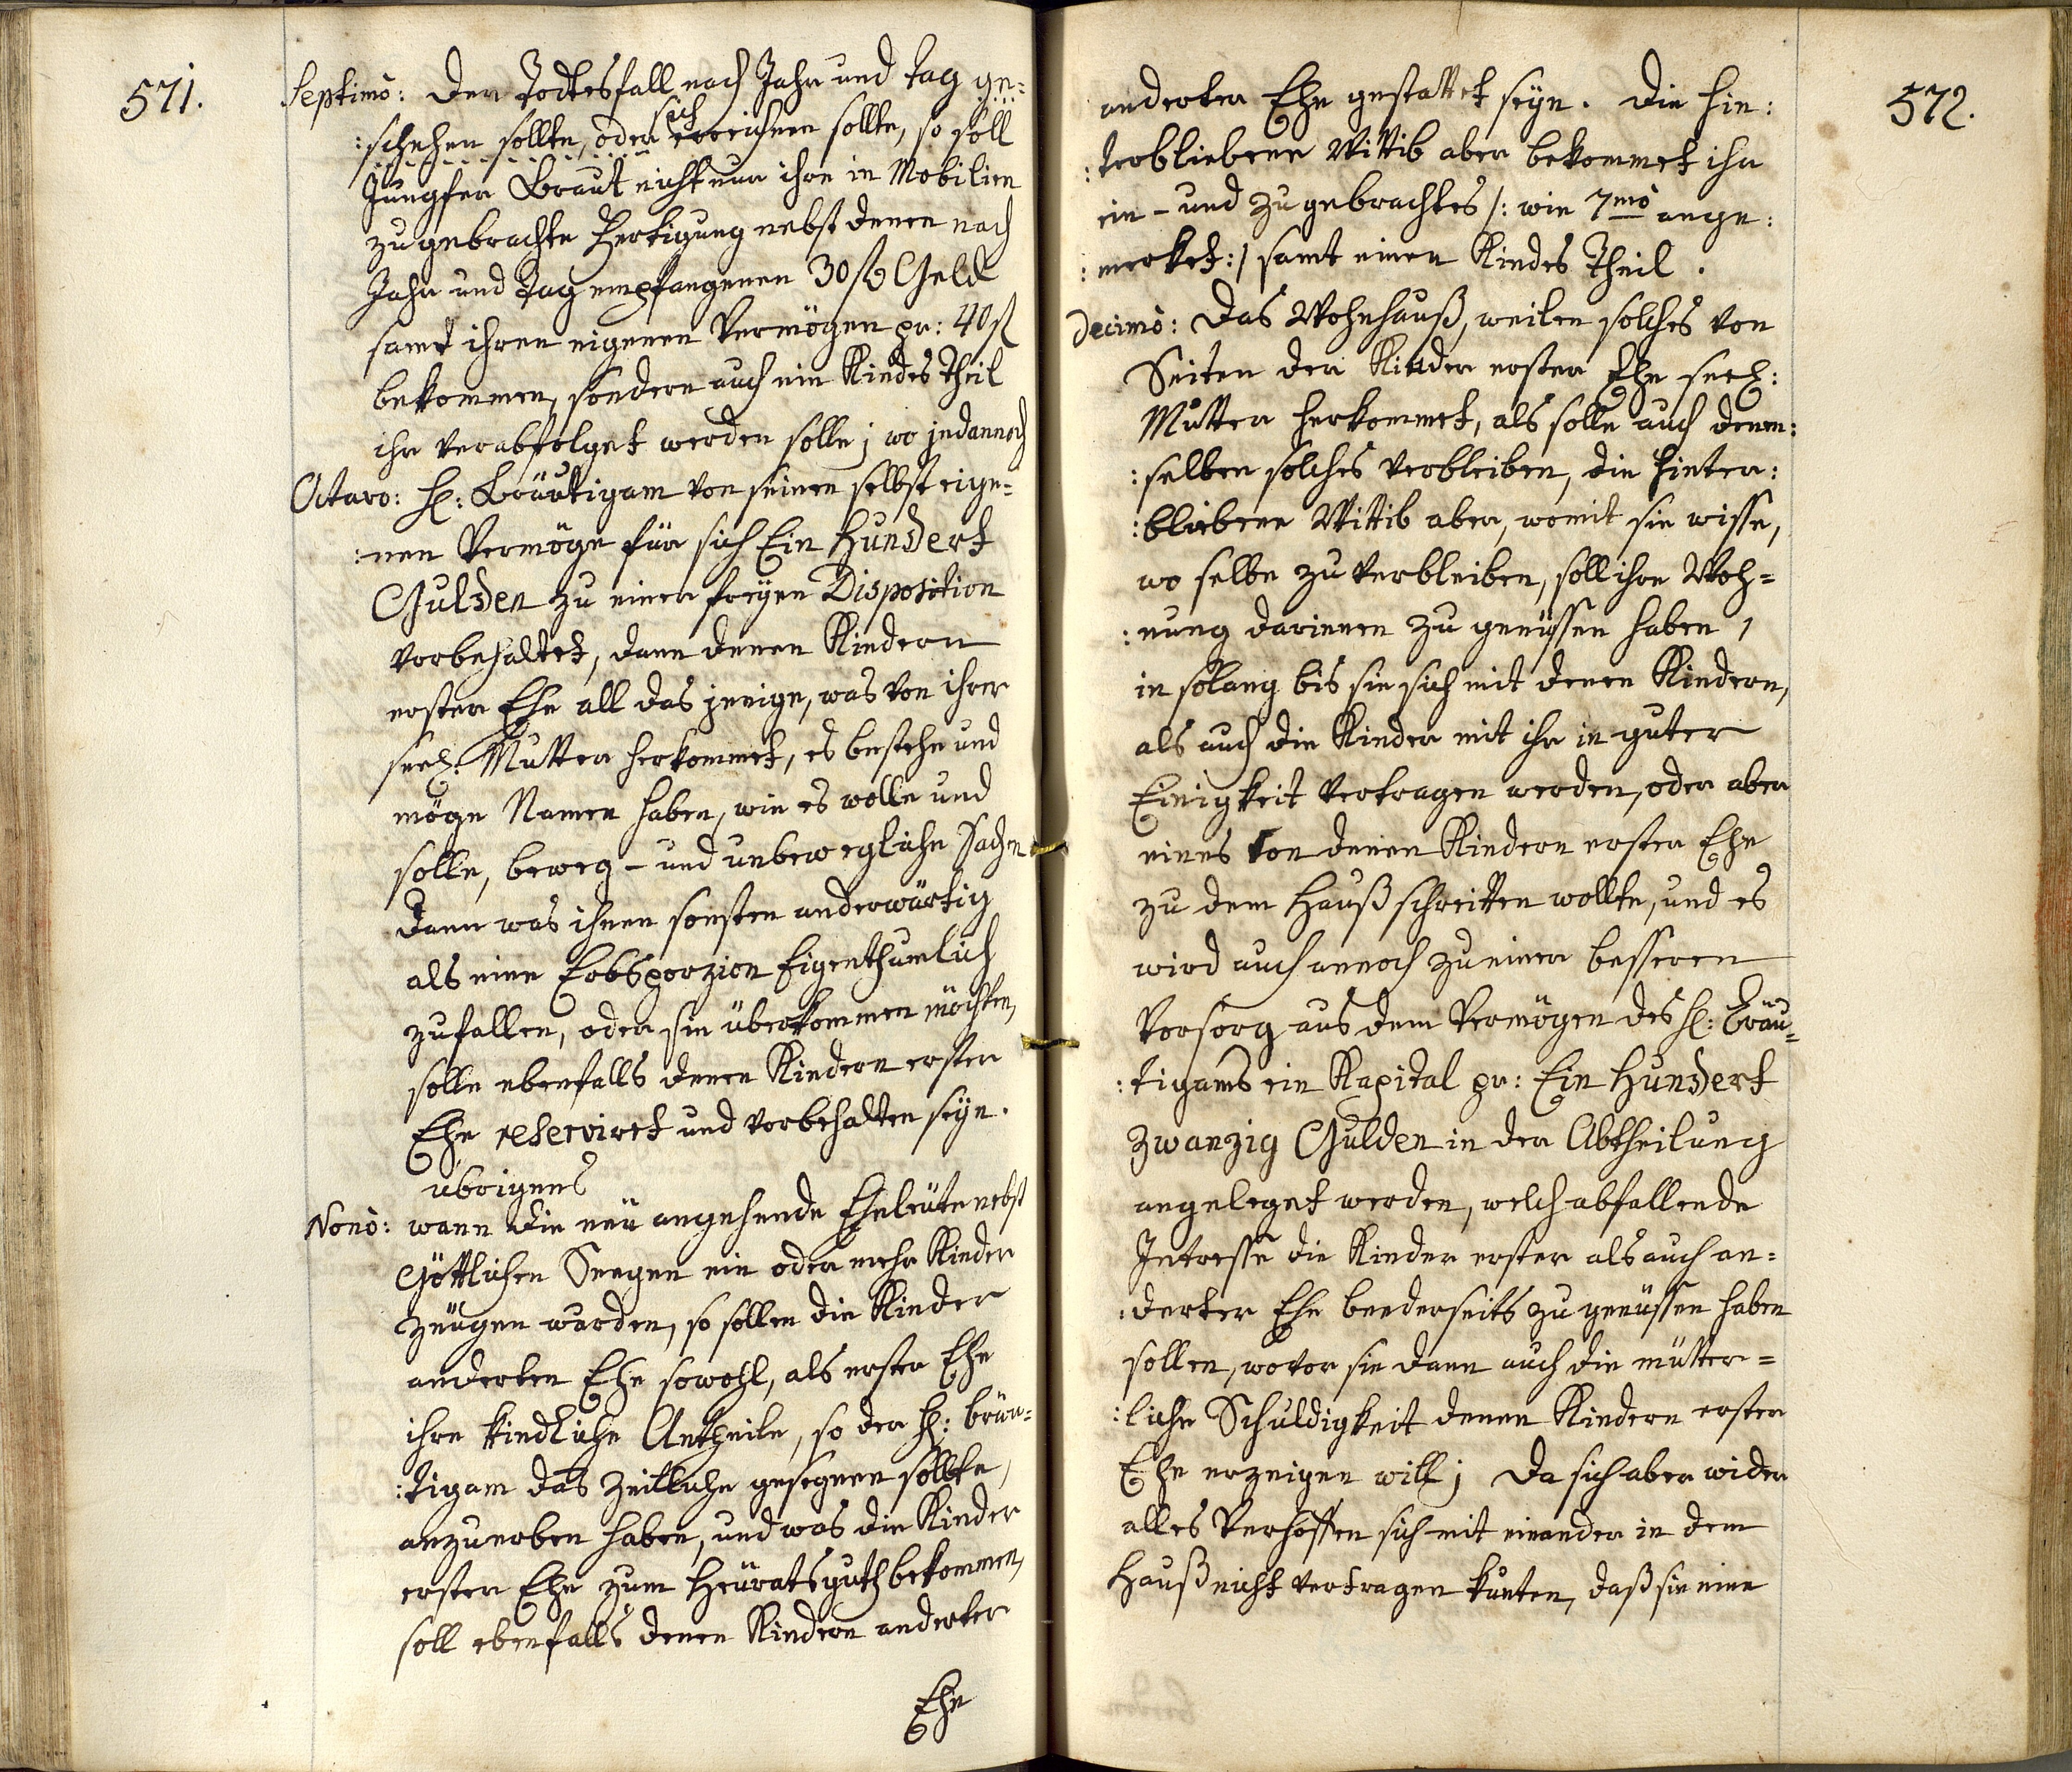 571.
Septimò: Der Todtesfall nach Jahr und tag ge=
:schehen sollte, oder sich ereichnen sollte, so soll
Jungfer Braut nicht nur ihre in Mobilien
zugebrachte Fertigung nebst denen nach
Jahr und Tag empfangenen 30 fl Geld
samt ihren eigenen Vermögen pr: 40 fl
bekommen, sondern auch ein Kindes theil
ihr verabfolget werden solle; wo jedannoch
Octavo: H: Bräutigam von seinen selbst eige=
:nen Vermöge für sich Ein Hundert
Gulden zu einer freyen Disposition
vorbehaltet, dann denen Kindern
erster Ehe all das jenige, was von ihrer
seel: Mutter herkommet, es bestehe und
möge Namen haben, wie es wolle und
solle, beweg- und unbewegliche Sachen
dann was ihnen sonsten anderwärtig
als eine Erbsporzion Eigenthumlich
zufallen, oder sie überkommen möchten,
solle ebenfalls denen Kindern erster
Ehe reserviret und vorbehalten seyn.
übrigens
Nonò: wann die neü angehende Eheleüte nebst
Göttlichen Seegen ein oder mehr Kinder
zeügen wurden, so sollen die Kinder
anderten Ehe sowohl, als erster Ehe
ihre kindliche Antheile, so der H: Bräu=
:tigam das Zeitliche gesegnen sollte,
anzuerben haben, und was die Kinder
erster Ehe zum Heüratsguth bekommen,
soll ebenfalls denen Kindern anderter
Ehe
572.
anderter Ehe gestattet seyn. Die hin:
:terbliebene Wittib aber bekommet ihr
ein- und zugebrachtes /: wie 7mò ange:
:merket :/ samt einen Kindes Theil.
Decimò: Das Wohnhauß, weilen solches von
Seiten der Kinder erster Ehe seel:
Mutter herkommet, als solle auch denen:
:selben solches verbleiben, die hinter:
:bliebene Wittib aber, womit sie wisse,
wo selbe zu verbleiben, soll ihre Woh=
:nung darinnen zu genüssen haben,
in solang bis sie sich mit denen Kindern,
als auch die Kinder mit ihr in guter
Einigkeit vertragen werden, oder aber
eines von denen Kindern erster Ehe
zu dem Hauß schreitten wollte, und es
wird auch annoch zu einer besseren
Vorsorg aus dem Vermögen des H: Bräu=
:tigams ein Kapital pr: Ein Hundert
Zwanzig Gulden in der Abtheilung
angeleget werden, welch abfallende
Intresse die Kinder erster als auch an=
:derter Ehe beederseits zu genüssen haben
sollen, wovor sie dann auch die mütter=
:liche Schuldigkeit denen Kindern erster
Ehe erzeigen will; Da sich aber wider
alles Verhoffen sich mit einander in dem
Hauß nicht vertragen kunten, daß sie eine